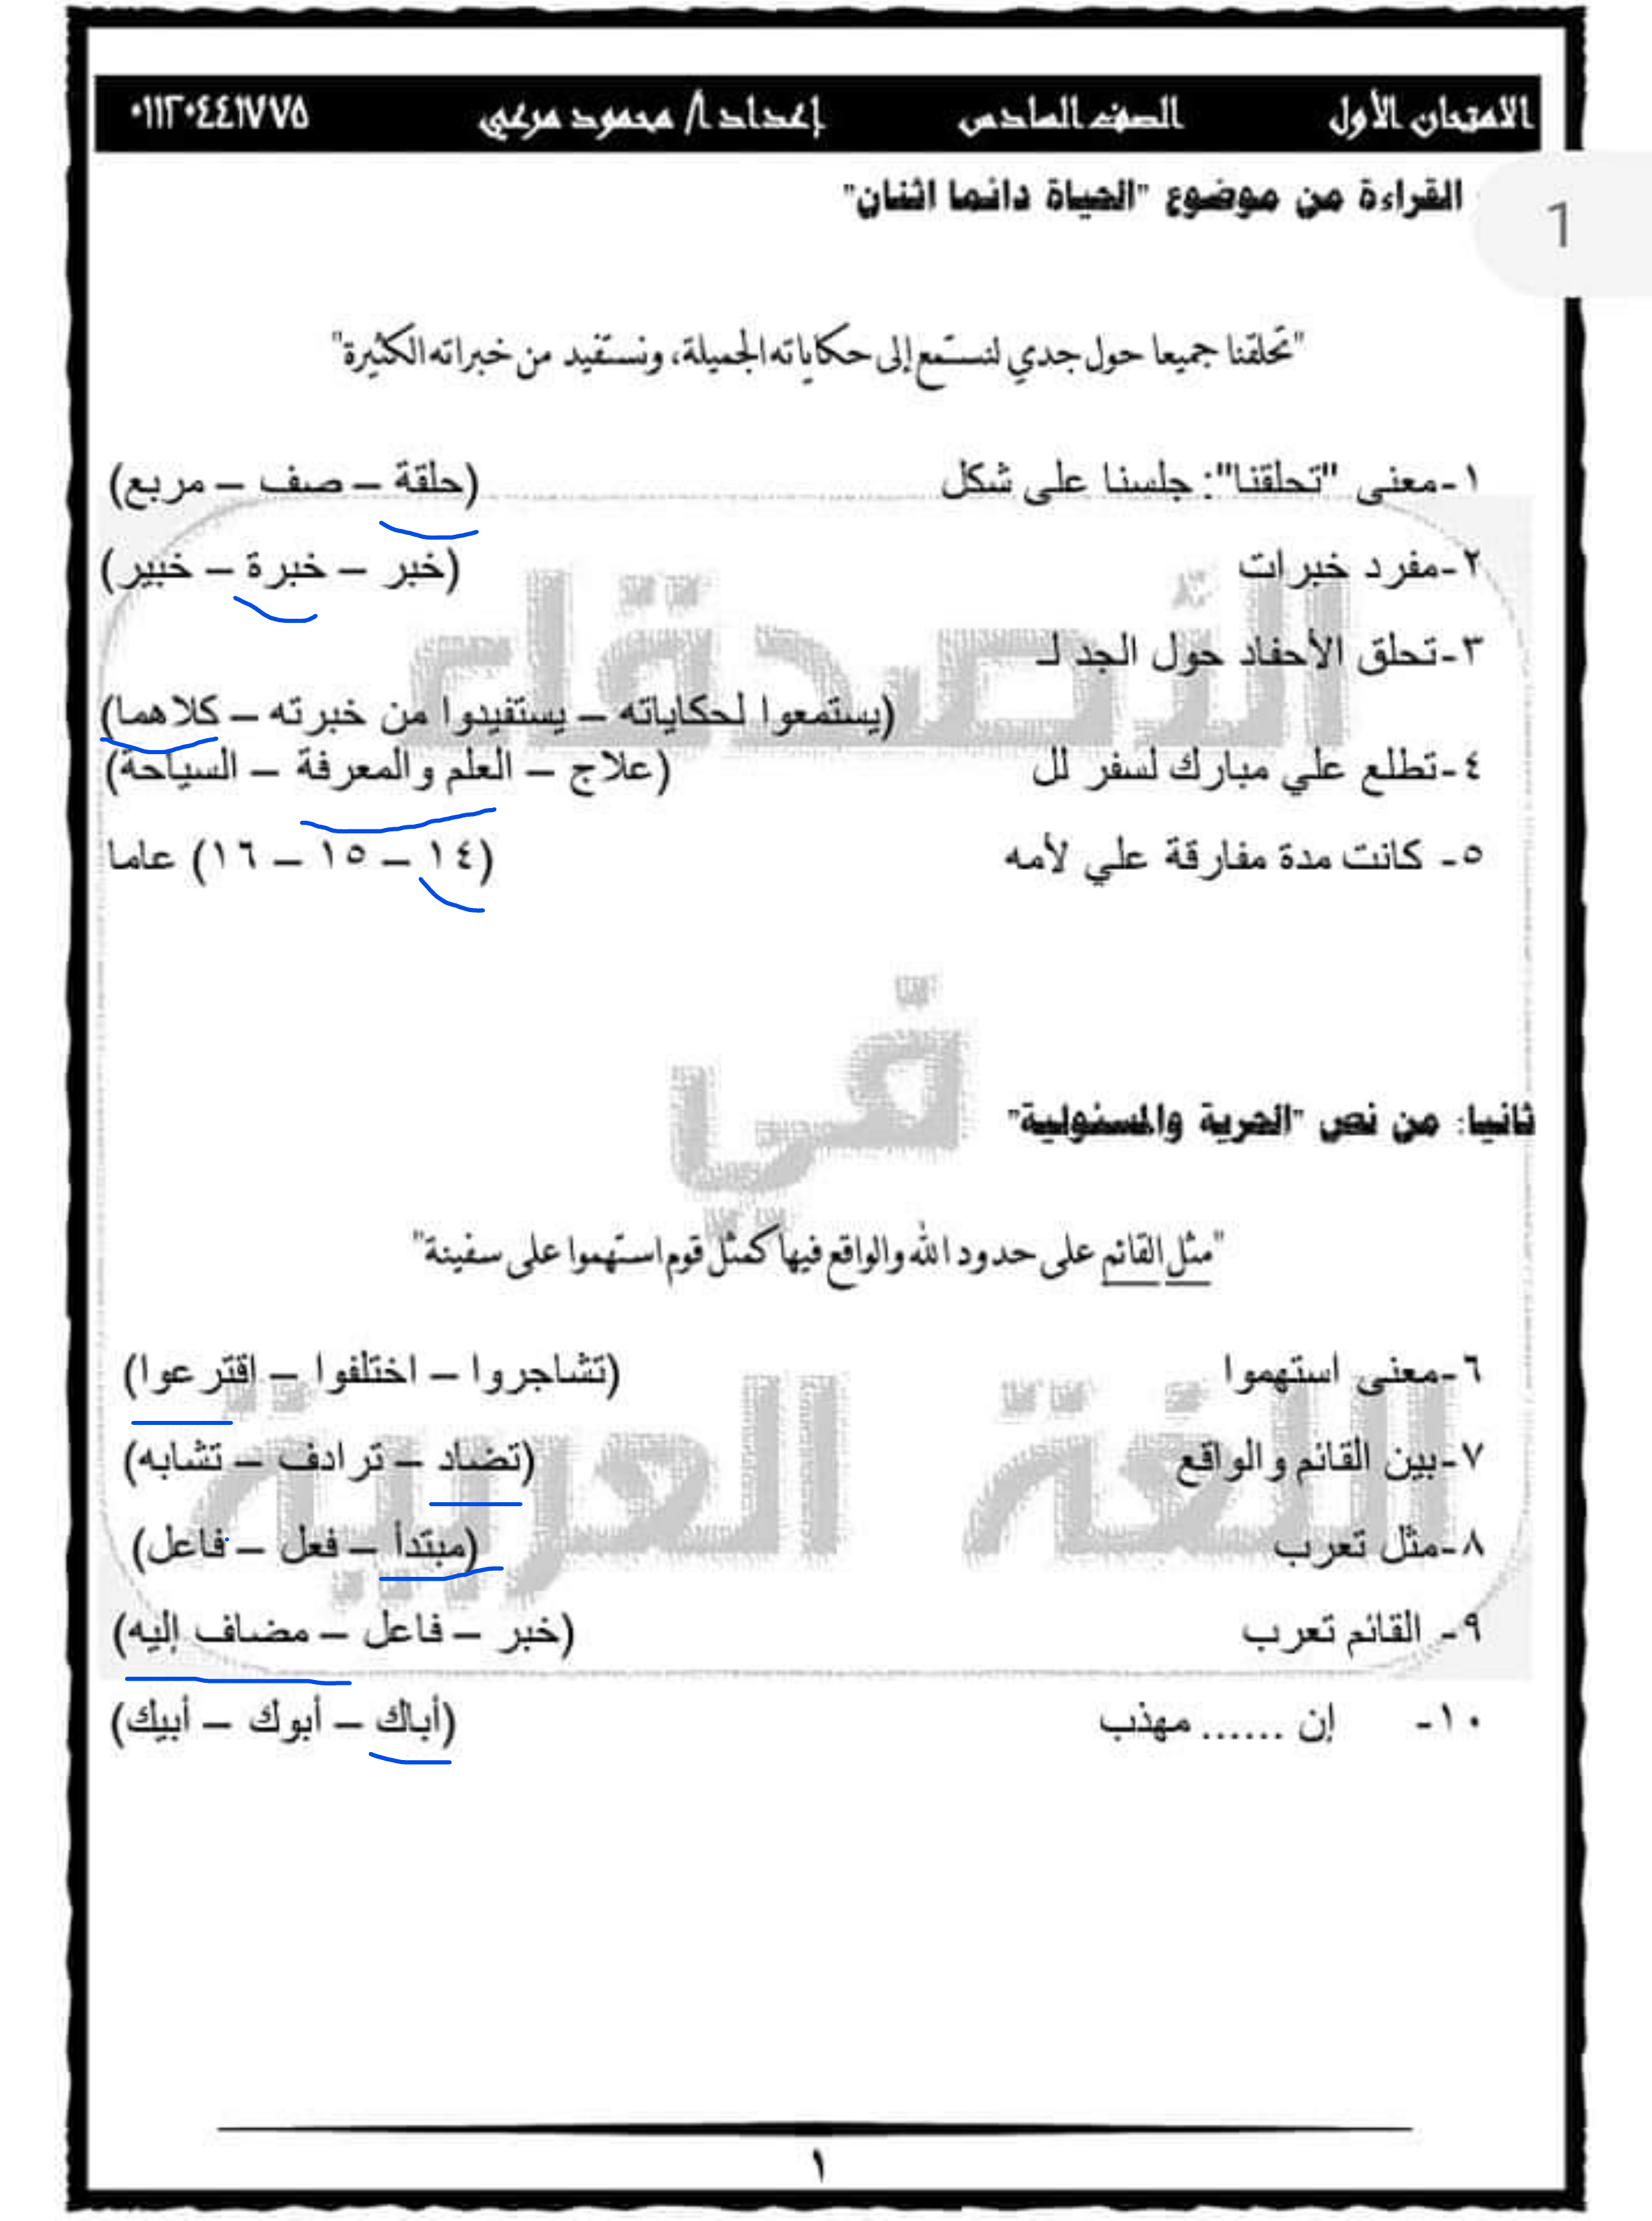 الامتحان الأول الصف السادس إعداد أ/ محمود مرعي ٠١١٢٠٤٤١٧٧٥
القراءة من موضوع "الحياة دائما اثنان"
1
"تحلقنا جميعا حول جدي لنستمع إلى حكاياته الجميلة، ونستفيد من خبراته الكثيرة"
١-معنى "تحلقنا": جلسنا على شكل (حلقة – صف – مربع)
٢-مفرد خبرات (خبر – خبرة – خبير)
٣-تحلق الأحفاد حول الجد لـ
(يستمعوا لحكاياته – يستفيدوا من خبرته – كلاهما)
٤-تطلع علي مبارك لسفر لل (علاج – العلم والمعرفة – السياحة)
٥- كانت مدة مفارقة علي لأمه (١٤ – ١٥ – ١٦) عاما
ثانيا: من نص "الحرية والمسئولية"
"مثل القائم على حدود الله والواقع فيها كمثل قوم استهموا على سفينة"
٦-معنى استهموا (تشاجروا – اختلفوا – اقترعوا)
٧-بين القائم والواقع (تضاد – ترادف – تشابه)
٨-مثل تعرب (مبتدأ – فعل – فاعل)
٩- القائم تعرب (خبر – فاعل – مضاف إليه)
١٠- إن ...... مهذب (أباك – أبوك – أبيك)
الأصدقاء
في
اللغة العربية
١